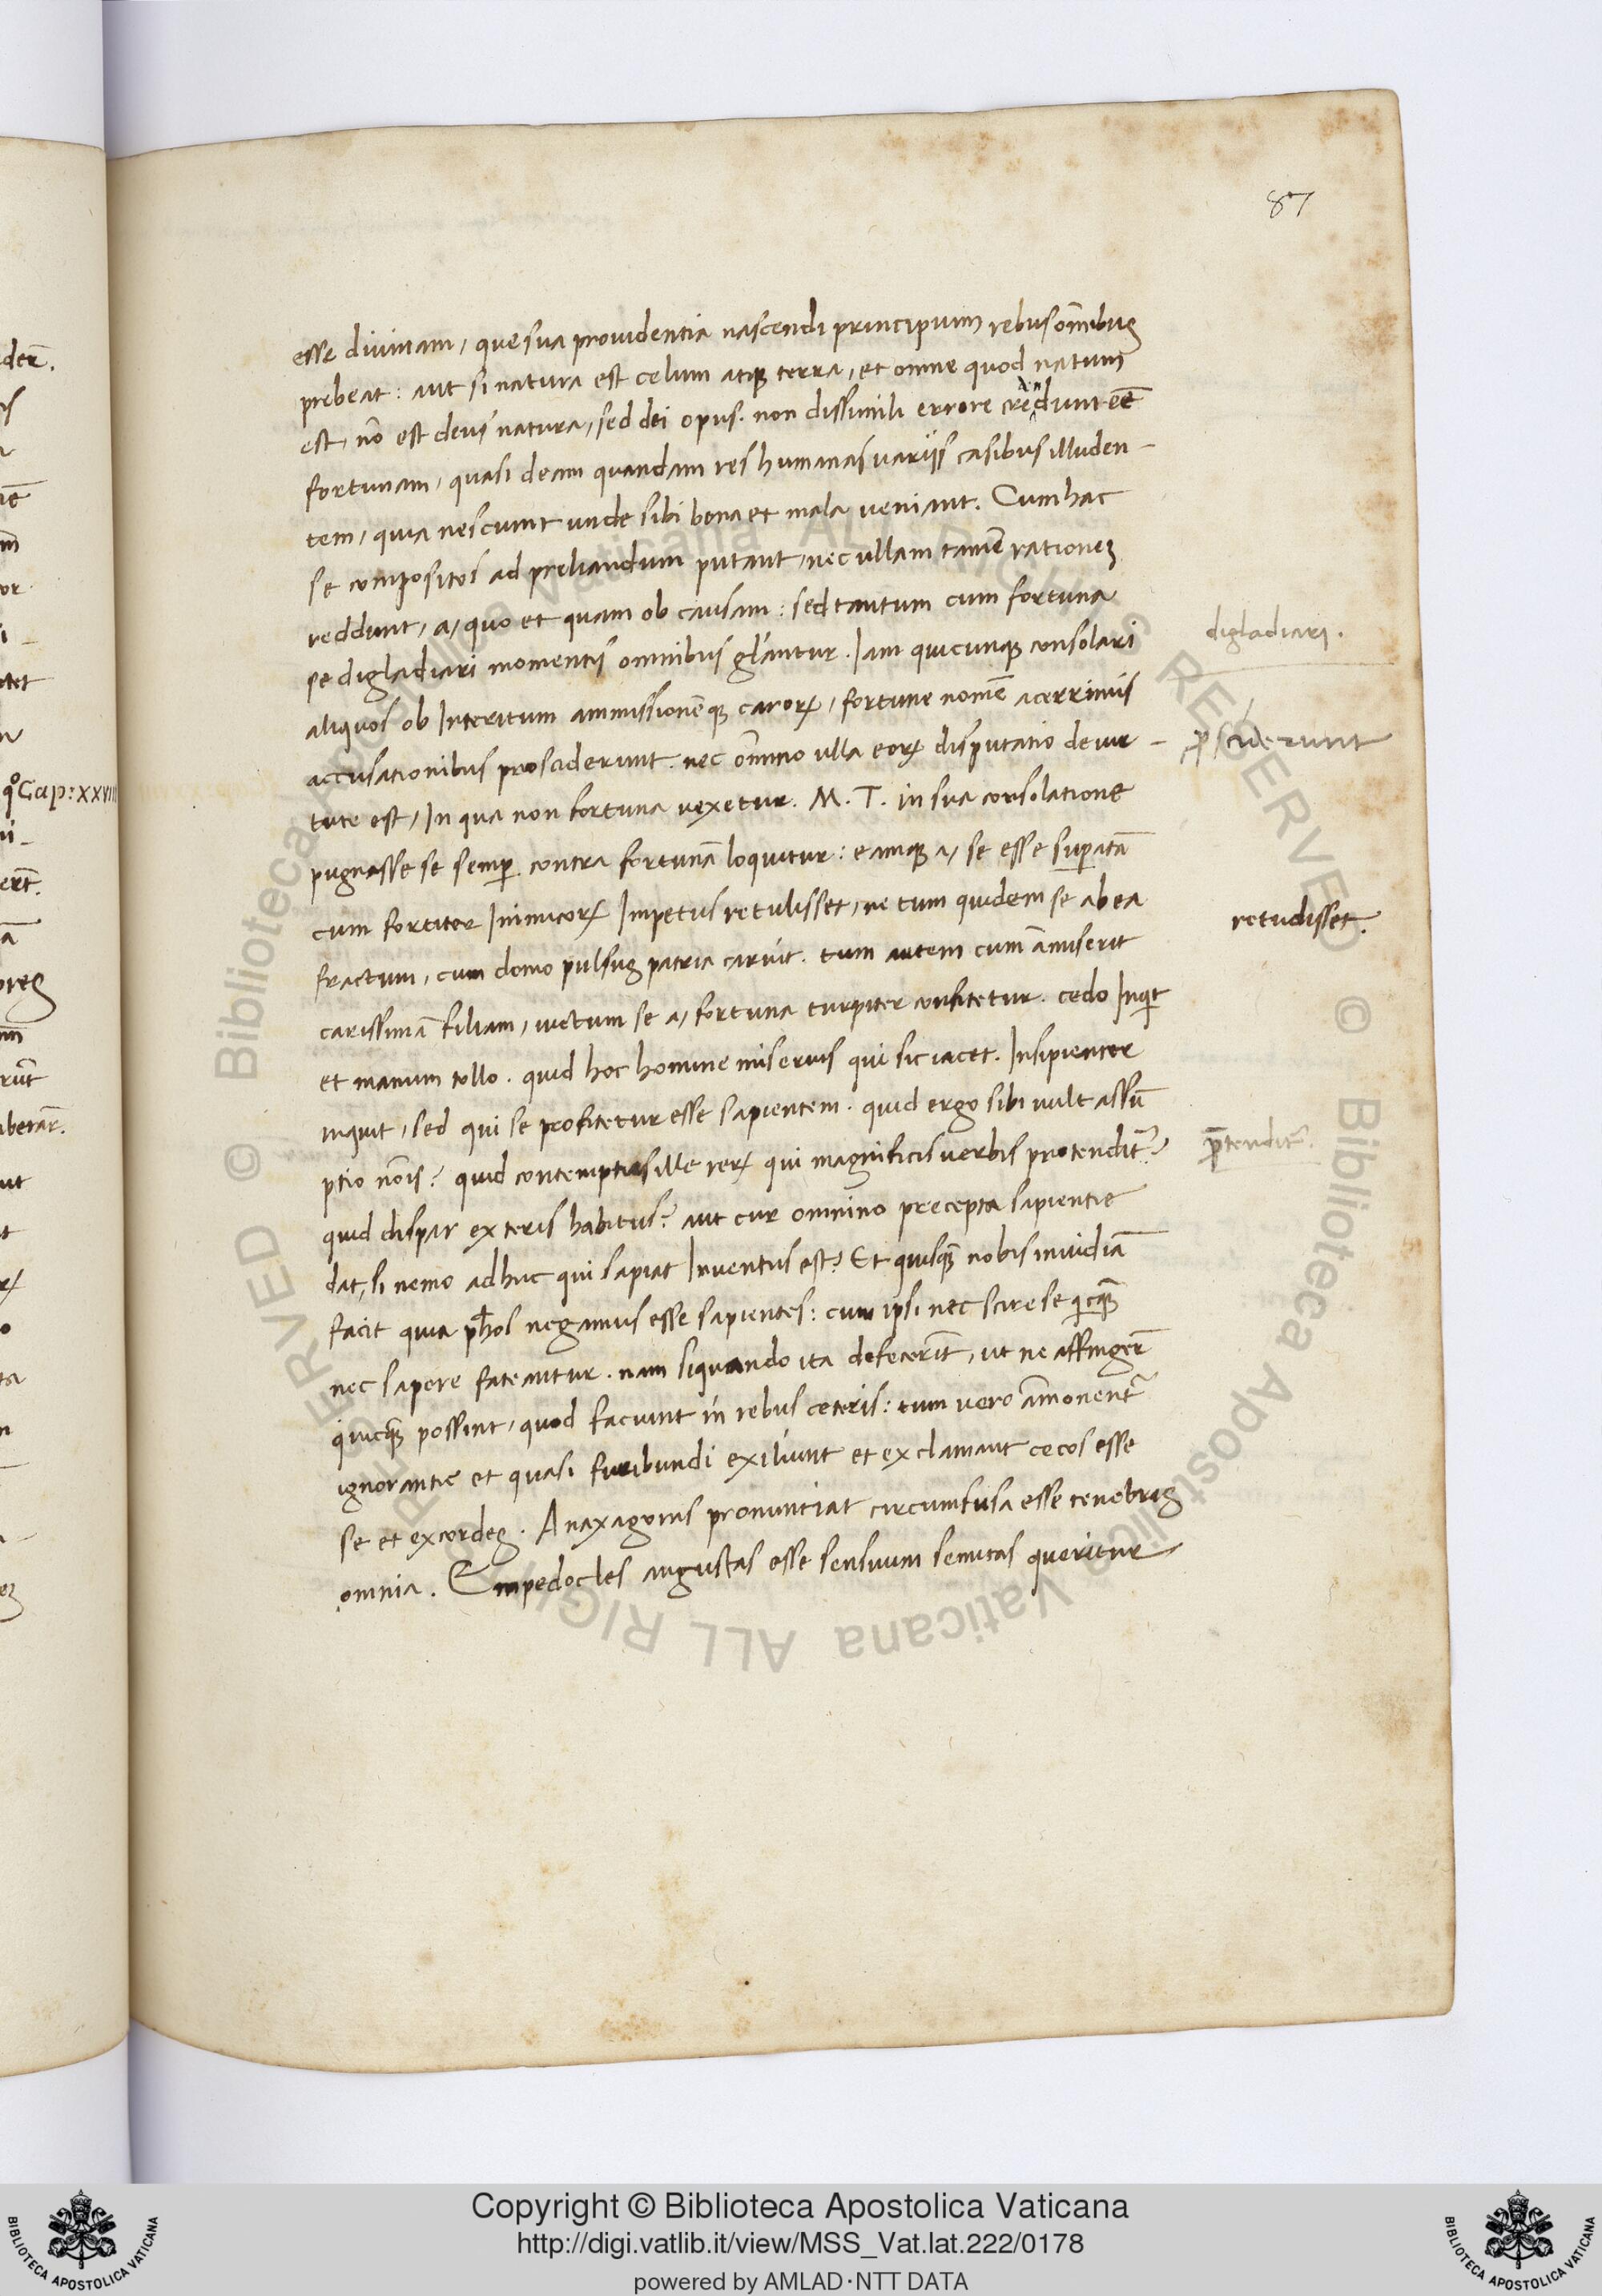 87
esse diuinam, que sua prouidentia nascendi principium rebus om̄ibus
prebeat: aut si natura est celum atq; terra, et omne quod natum
est, nō est deus natura, sed dei opus. non dissimili errore credunt eē̄
fortunam, quasi deam quandam res humanas uariis casibus illuden-
tem, quia nesciunt unde sibi bona et mala ueniant. Cum hac
se compositos ad preliandum putant, nec ullam tamē rationem
reddunt, a, quo et quam ob causam: sed tantum cum fortuna
se digladiari momentis omnibus gl̄antur. Iam quicunq; consolari
aliquos ob Interitum ammissionēq; caroꝝ, fortune nomē acerrimis
accusationibus prosciderunt. nec om̄ino ulla eoꝝ disputatio de uir-
tute est, In qua non fortuna uexetur. M. T. in sua consolatione
pugnasse se semp̲ contra fortunā loquitur: eamq; a, se esse sup̲atā
cum fortiter Inimicoꝝ Impetus retulisset, ne tum quidem se ab ea
fractum, cum domo pulsus patria caruit. tum autem cum āmiserit
carissimā filiam, uictum se a, fortuna turpiter confitetur. cedo Inqt
et manum tollo. quid hoc homine miserius qui sic iacet. Insipienter
inquit, sed qui se profitetur esse sapientem. quid ergo sibi uult assū
ptio nōis? quid contemptus ille reꝝ qui magnificis uerbis protendit̃?
quid dispar exteris habitus? aut cur omnino precepta sapientie
dat, si nemo adhuc qui sapiat Inuentus est? Et quisq̄ nobis inuidiā
facit quia ph̄os negamus esse sapientes: cum ipsi nec scire se qicq̄
nec sapere fateantur. nam siquando ita defecerīt, ut ne affingerē
quicq̄ possint, quod faciunt in rebus ceteris: tum uero am̄onent̃
ignorantie et quasi furibundi exiliunt et exclamant cecos esse
se et excordes. Anaxagoras pronuntiat circumfusa esse tenebris
omnia. Empedocles angustas esse sensuum semitas queritur
digladiari.
ꝓsciderunt
retudisset.
p̄tendit̃.
qº Cap: XXVIII
Copyright © Biblioteca Apostolica Vaticana
http://digi.vatlib.it/view/MSS_Vat.lat.222/0178
powered by AMLAD·NTT DATA
BIBLIOTECA APOSTOLICA VATICANA
BIBLIOTECA APOSTOLICA VATICANA